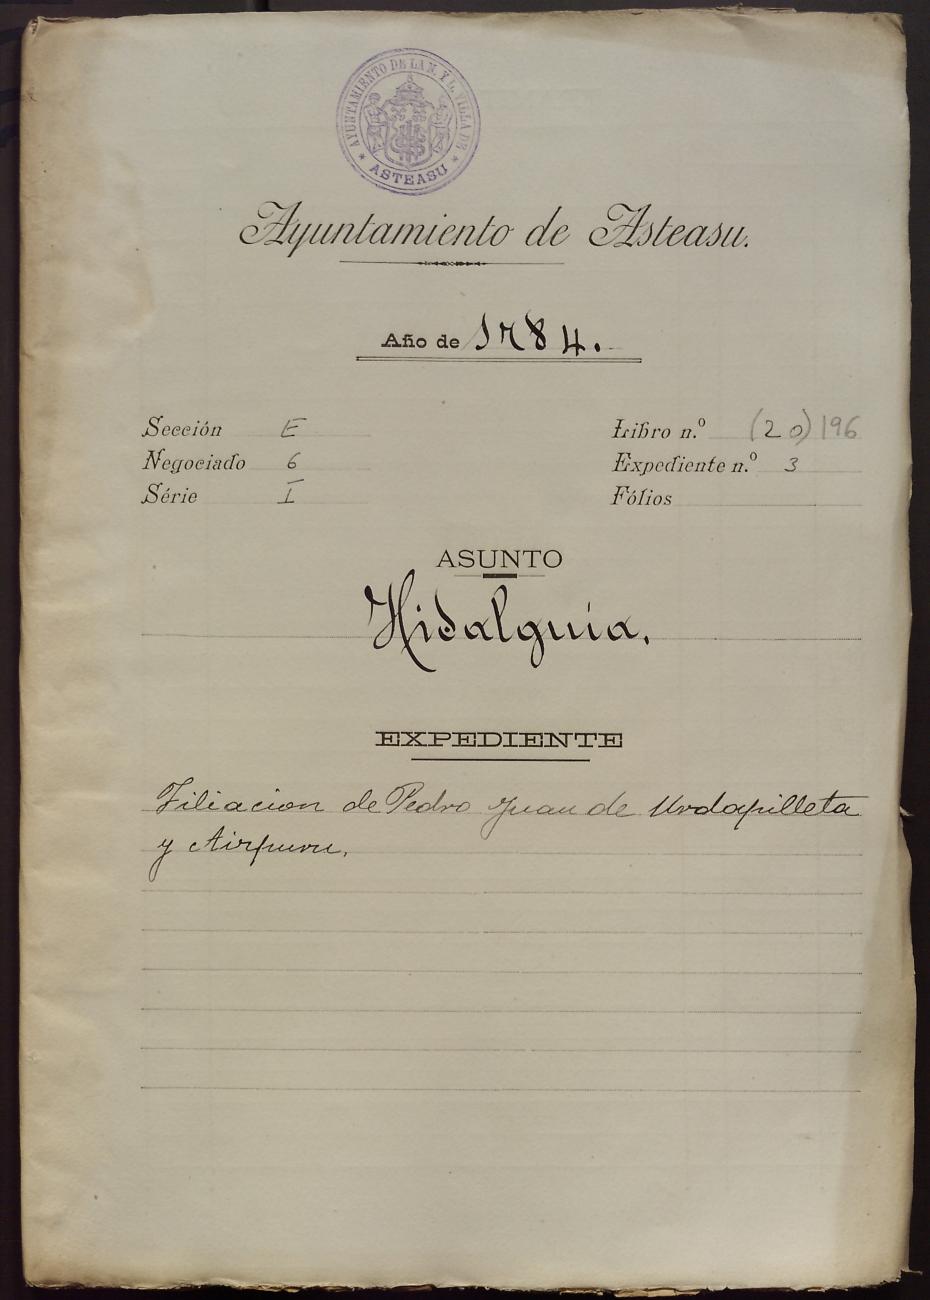 AYUNTAMIENTO DE LA N. Y L. VILLA DE
ASTEASU
Ayuntamiento de Asteasu.
Año de 1784.
Sección E
Negociado 6
Série I
Libro n.º (20) 196
Expediente n.º 3
Fólios
ASUNTO
Hidalguia.
EXPEDIENTE
Filiacion de Pedro Juan de Urdapilleta
y Airpuru.